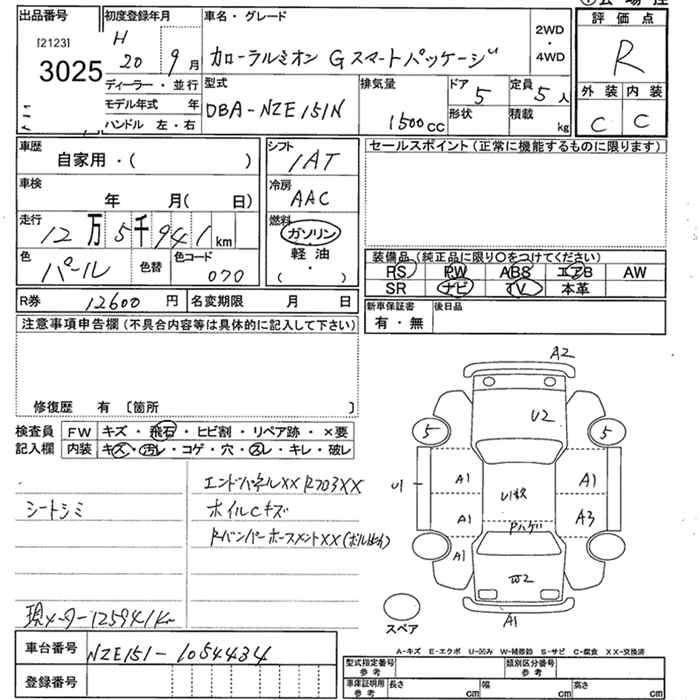 出品番号
[2123]
3025
初度登録年月
H 20 9 月
ディーラー・並行
モデル年式 年
ハンドル 左・右
車名・グレード
カローラルミオン Gスマートパッケージ
2WD
・
4WD
型式
DBA-NZE151N
排気量
1500cc
ドア 5
形状
定員 5 人
積載 kg
評価点
R
外装 内装
C C
車歴
自家用・( )
車検
年 月( 日)
走行
12万5千941km
色
パール
色替
色コード
070
シフト
IAT
冷房
AAC
燃料
ガソリン
軽油
・
( )
セールスポイント(正常に機能するものに限ります)
装備品(純正品に限り〇をつけてください)
PS PW ABS エアB AW
SR ナビ TV 本革
R券 12600 円
名変期限 月 日
新車保証書
有・無
後日品
注意事項申告欄(不具合内容等は具体的に記入して下さい)
修復歴 有 〔箇所 〕
検査員
記入欄
FW キズ・飛石・ヒビ割・リペア跡・×要
内装 キズ・汚レ・コゲ・穴・スレ・キレ・破レ
シートシミ
現メーター125941Km
エンドパネルXX RフロアXX
ホイルCキズ
RバンパーホースメントXX(ボルト止め)
A2
U2
5
5
U1
A1
A1
A1
A1
A3
W2
A1
スペア
A-キズ E-エクボ U-凹み W-補修跡 S-サビ C-腐食 XX-交換済
車台番号
NZE151-1054434
登録番号
型式指定番号
参考
類別区分番号
参考
車庫証明用
参考
長さ cm
幅 cm
高さ cm